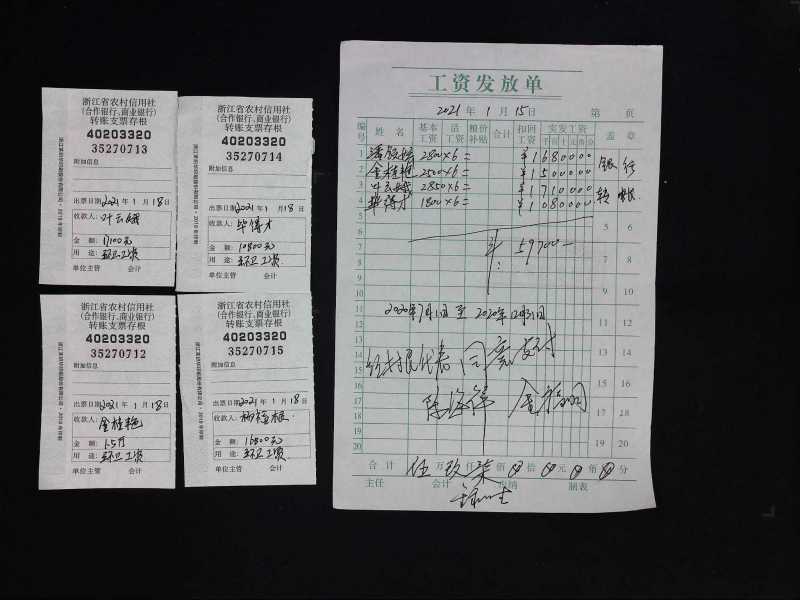 浙江省农村信用社
(合作银行、商业银行)
转账支票存根
40203320
35270713
附加信息
出票日期2021年1月18日
收款人:叶云娥
金 额:17100元
用 途:环卫工资
单位主管 会计
浙江省农村信用社
(合作银行、商业银行)
转账支票存根
40203320
35270714
附加信息
出票日期2021年1月18日
收款人:毕得才
金 额:10800元
用 途:环卫工资.
单位主管 会计
浙江省农村信用社
(合作银行、商业银行)
转账支票存根
40203320
35270712
附加信息
出票日期2021年1月18日
收款人:金桂艳
金 额:1.5万
用 途:环卫工资
单位主管 会计
浙江省农村信用社
(合作银行、商业银行)
转账支票存根
40203320
35270715
附加信息
出票日期2021年1月18日
收款人:
金 额:16800元
用 途:环卫工资
单位主管 会计
工资发放单
2021年1月15日 第 页
编号 姓名 基本工资 活工资 粮价补贴 合计 扣回工资 实发工资 盖章
千百十元角分
1 2800×6= ¥1680000 银行
2 金桂艳 2500×6= ¥1500000
3 叶云娥 2850×6= ¥1710000 转帐
4 毕得才 1800×6= ¥1080000
5 5 6
6
7 ¥:59700— 7 8
8
9 9 10
10
11 2020年7月1日至2020年12月31日 11 12
12
13 13 14
14 经村民代表同意支付
15 15 16
16
17 17 18
18
19 19 20
20
合计 伍万玖仟柒佰 拾 元 角 分
主任 会计 出纳 制表